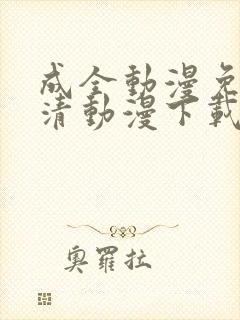 成全動漫免
清動漫下載
奧羅拉